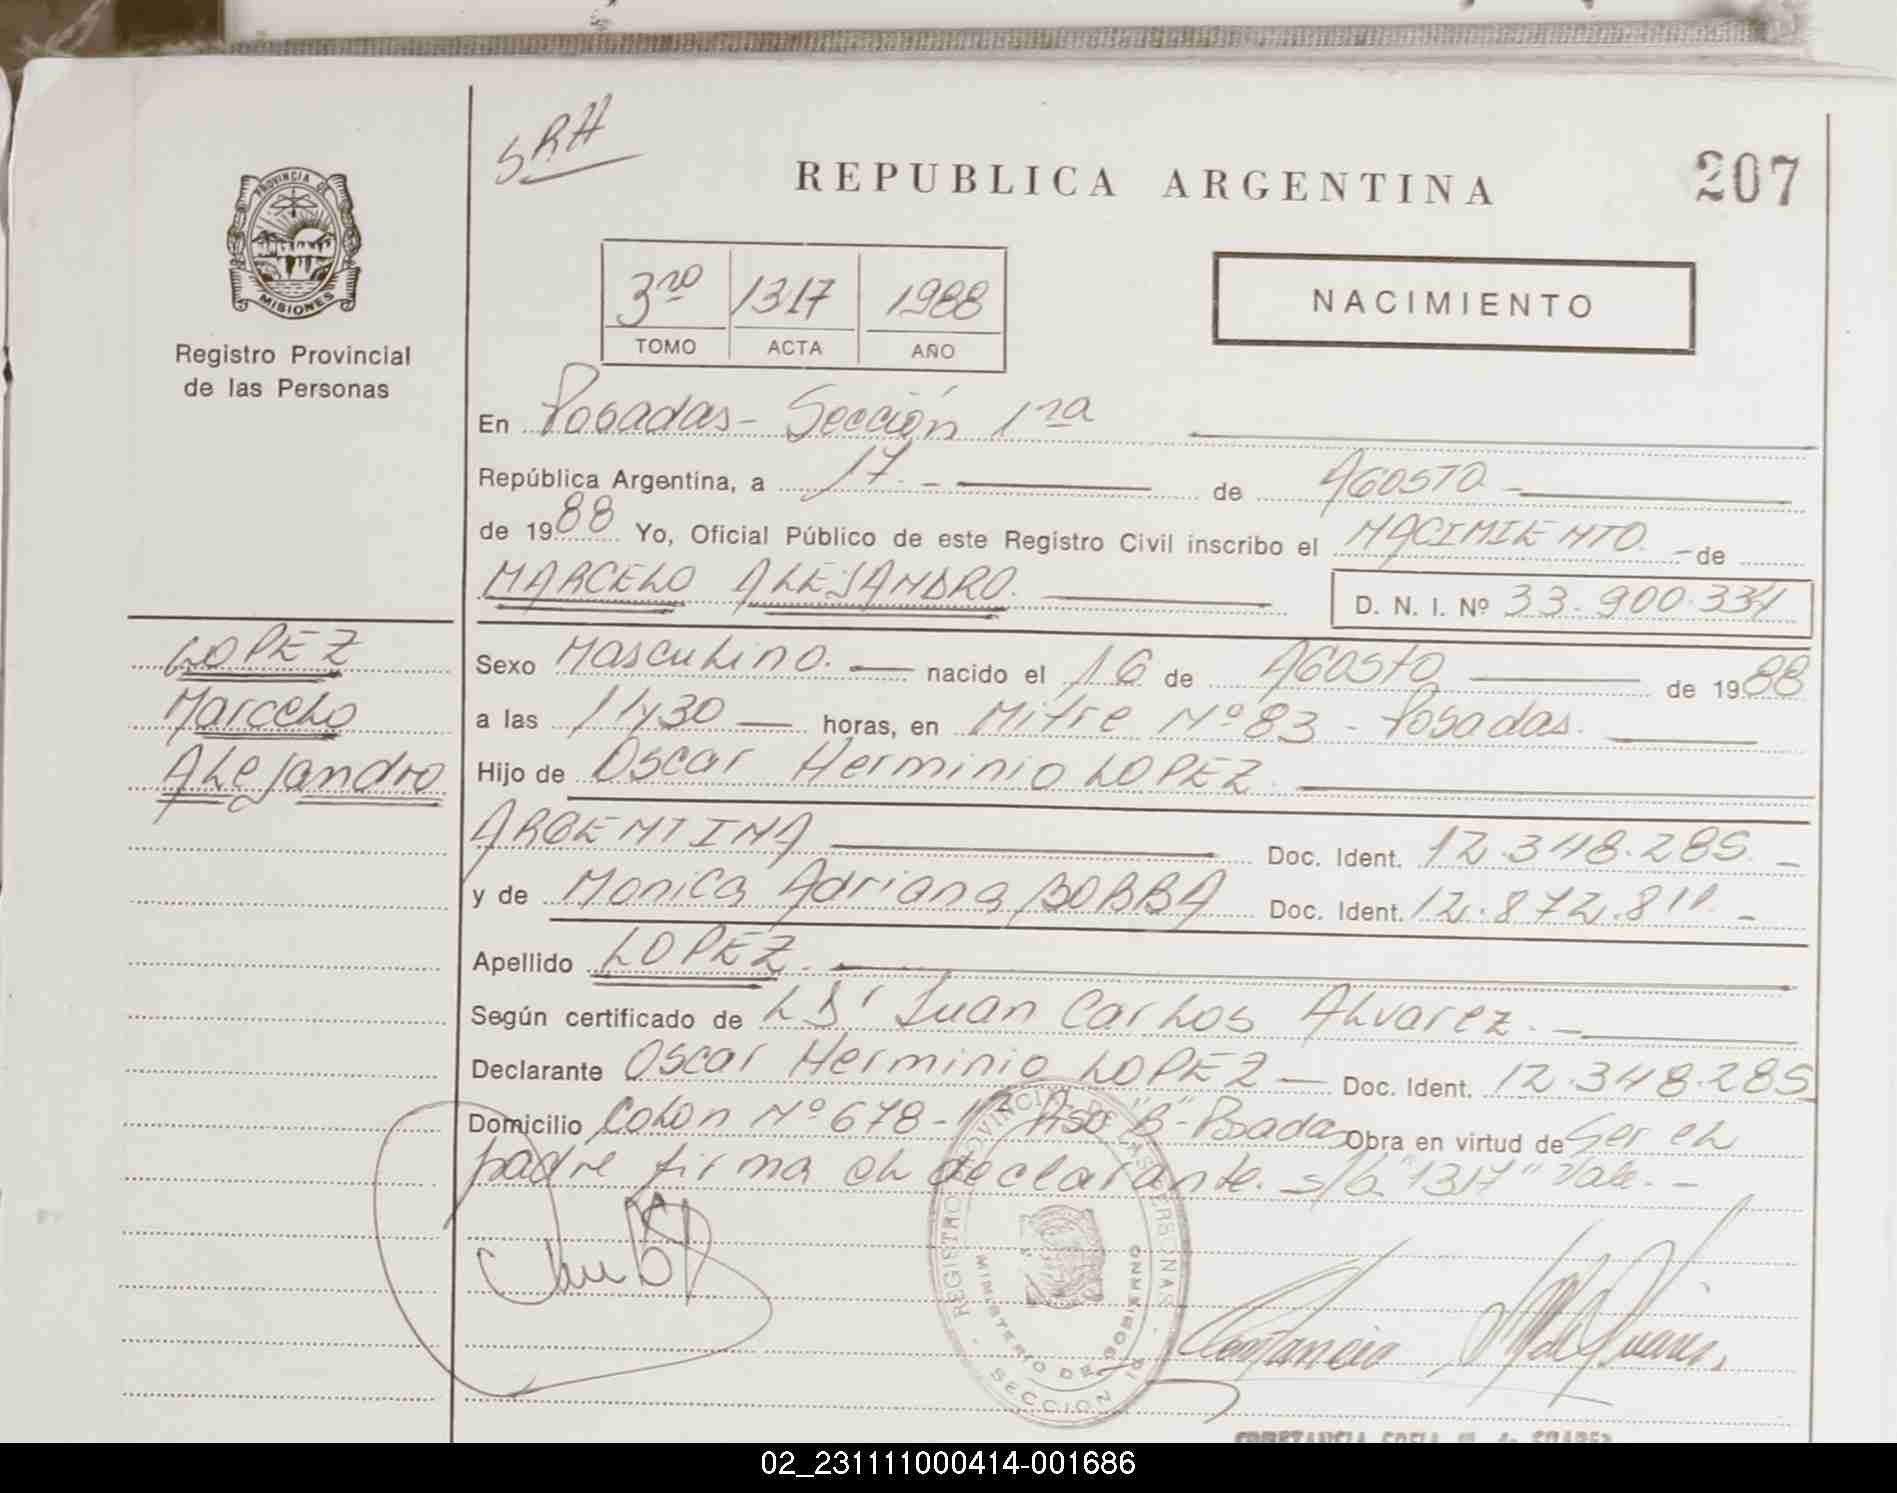 SRH
REPUBLICA ARGENTINA
207
PROVINCIA DE
MISIONES
Registro Provincial
de las Personas
3ro 1317 1988
TOMO ACTA AÑO
NACIMIENTO
En Posadas - Sección 1ra
República Argentina, a 17. - de AGOSTO -
de 1988 Yo, Oficial Público de este Registro Civil inscribo el NACIMIENTO. - de
MARCELO ALEJANDRO. D. N. I. Nº 33.900.334
LOPEZ
Marcelo
Alejandro
Sexo Masculino. nacido el 16 de AGOSTO de 1988
a las 11y30 horas, en Mitre Nº 83 - Posadas.
Hijo de Oscar Herminio LOPEZ.
ARGENTINA Doc. Ident. 12.348.285. -
y de Monica Adriana BOBBA Doc. Ident. 12.872.811. -
Apellido LOPEZ.
Según certificado de L Dr Juan Carlos Alvarez. -
Declarante Oscar Herminio LOPEZ - Doc. Ident. 12.348.285
Domicilio Colon Nº 678 - Piso "B" - Posadas Obra en virtud de Ser el
padre firma el declarante. s/b "1317" Vale. -
REGISTRO PROVINCIAL DE LAS PERSONAS
MINISTERIO DE GOBIERNO
SECCION 1a
Constancia
02_231111000414-001686